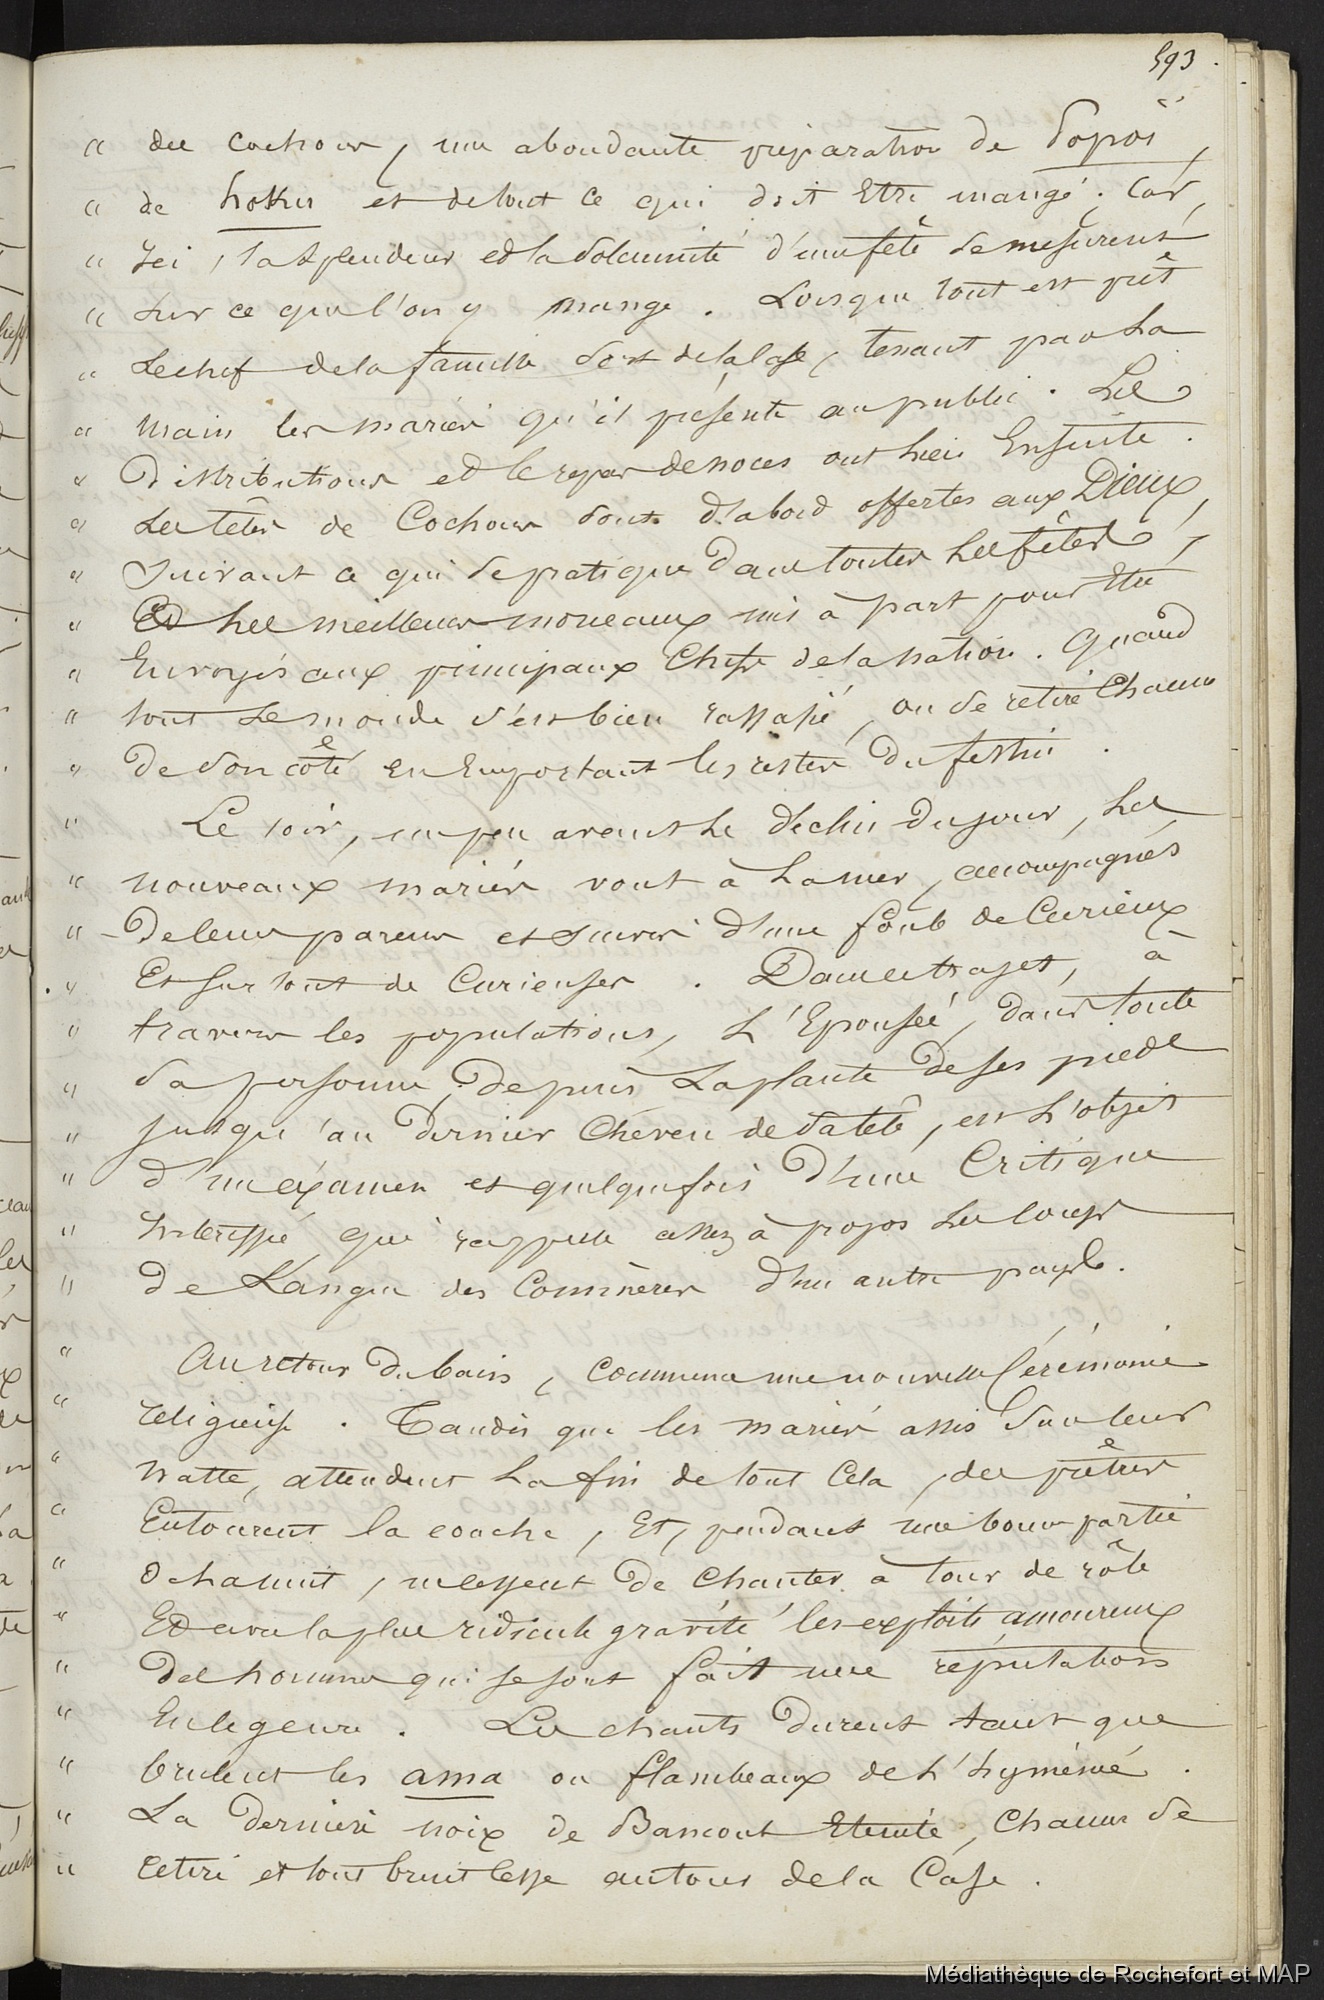 593.
" des cochons, une abondante préparation de Popoï,
" de hokus et de tout ce qui doit Etre mangé. Car,
" Ici, la splendeur et la solennité d'une fête se mesurent
" sur ce que l'on y mange. Lorsque tout est prêt
" Le chef de la famille sort de la Case, tenant par La
" main les mariés qu'il présente au public. Les
" Distributions et le repas de noces ont lieu Ensuite.
" Les têtes de Cochons sont d'abord offertes aux Dieux,
" Suivant ce qui se pratique dans toutes Les fêtes,
" Et Les meilleurs morceaux mis à part pour Etre
" Envoyés aux principaux Chefs de la nation. Quand
" tout Le monde s'est bien rassasié, on se retire Chacun
" De son côté en Emportant les restes Du festin.
" Le soir, un peu avant Le déclin Du jour, Les
" nouveaux mariés vont à La mer, accompagnés
" De leurs parens et suivis d'une foule de Curieux
" Et surtout de Curieuses. Dans ce trajet, à
" travers les populations, L'Epousée, dans toute
" Sa personne, depuis La plante de ses pieds
" jusqu'au dernier Cheveu de sa tête, est L'objet
" d'un examen et quelquefois d'une Critique
" Intéressée qui rappelle assez à propos Les coups
" De Langue des Commères d'un autre pays.
" Au retour du bain, commence une nouvelle Cérémonie
" religieuse. Tandis que les mariés assis Sur leur
" natte, attendent La fin de tout Cela, des prêtres
" Entourent la couche, Et, pendant une bonne partie
" de la nuit, ne cessent De Chanter à tour de rôle
" Et avec la plus ridicule gravité les exploits amoureux
" Des hommes qui se sont fait une réputation
" En ce genre. Les chants Durent tant que
" brulent les ama ou flambeaux de L'hyménée.
" La Dernière noix de Bancoul Eteinte, Chacun Se
" retire et tout bruit Cesse autour de la Case.
Médiathèque de Rochefort et MAP